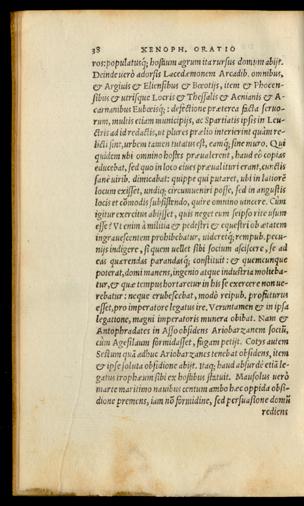 38 XENOPH. ORATIO
ros: populatusq́; hostium agrum ita rursus domum abijt.
Deinde uerò adorsis Lacedæmonem Arcadib. omnibus,
& Argiuis & Eliensibus & Bœotijs, item & Phocen-
sibus & utrisque Locris & Thessalis & Aenianis & A-
carnanibus Euboeisq́;: defectione præterea facta seruo-
rum, multis etiam municipijs, ac Spartiatis ipsis in Leu-
ctris ad id redactis, ut plures prælio interierint quàm re-
licti sint, urbem tamen tutatus est, eamq́; sine muro. Qui
quidem ubi omnino hostes præualerent, haud eò copias
educebat, sed quo in loco ciues præualituri erant, cunctis
sanè uirib. dimicabat: quippe qui putaret, ubi in latiorē
locum exisset, undiq; circumueniri posse, sed in angustis
locis et cōmodis subsistendo, quire omnino uincere. Cùm
igitur exercitus abijsset, quis neget eum seipso rite usum
esse? Vt enim à militia & pedestri & equestri ob ætatem
ingrauescentem prohibebatur, uideretq́; rempub. pecu-
nijs indigere, si quem uellet sibi socium asciscere, se ad
eas quærendas parandasq́; constituit: & quæcunque
poterat, domi manens, ingenio atque industria molieba-
tur, & quæ tempus hortaretur in his se exercere non ue-
rebatur: neque erubescebat, modò reipub. profuturus
esset, pro imperatore legatus ire. Veruntamen & in ipsa
legatione, magni imperatoris munera obibat. Nam &
Antophradates in Asso obsidens Ariobarzanem sociū,
cùm Agesilaum formidasset, fugam petijt. Cotys autem
Sestum quā adhuc Ariobarzanes tenebat obsidens, item
& ipse soluta obsidione abijt. Itaq; haud absurdè etiā le-
gatus trophæum sibi ex hostibus statuit. Mausolus uerò
marte maritimo nauibus centum ambo hæc oppida obsi-
dione premens, iam nō formidine, sed persuasione domū
rediens